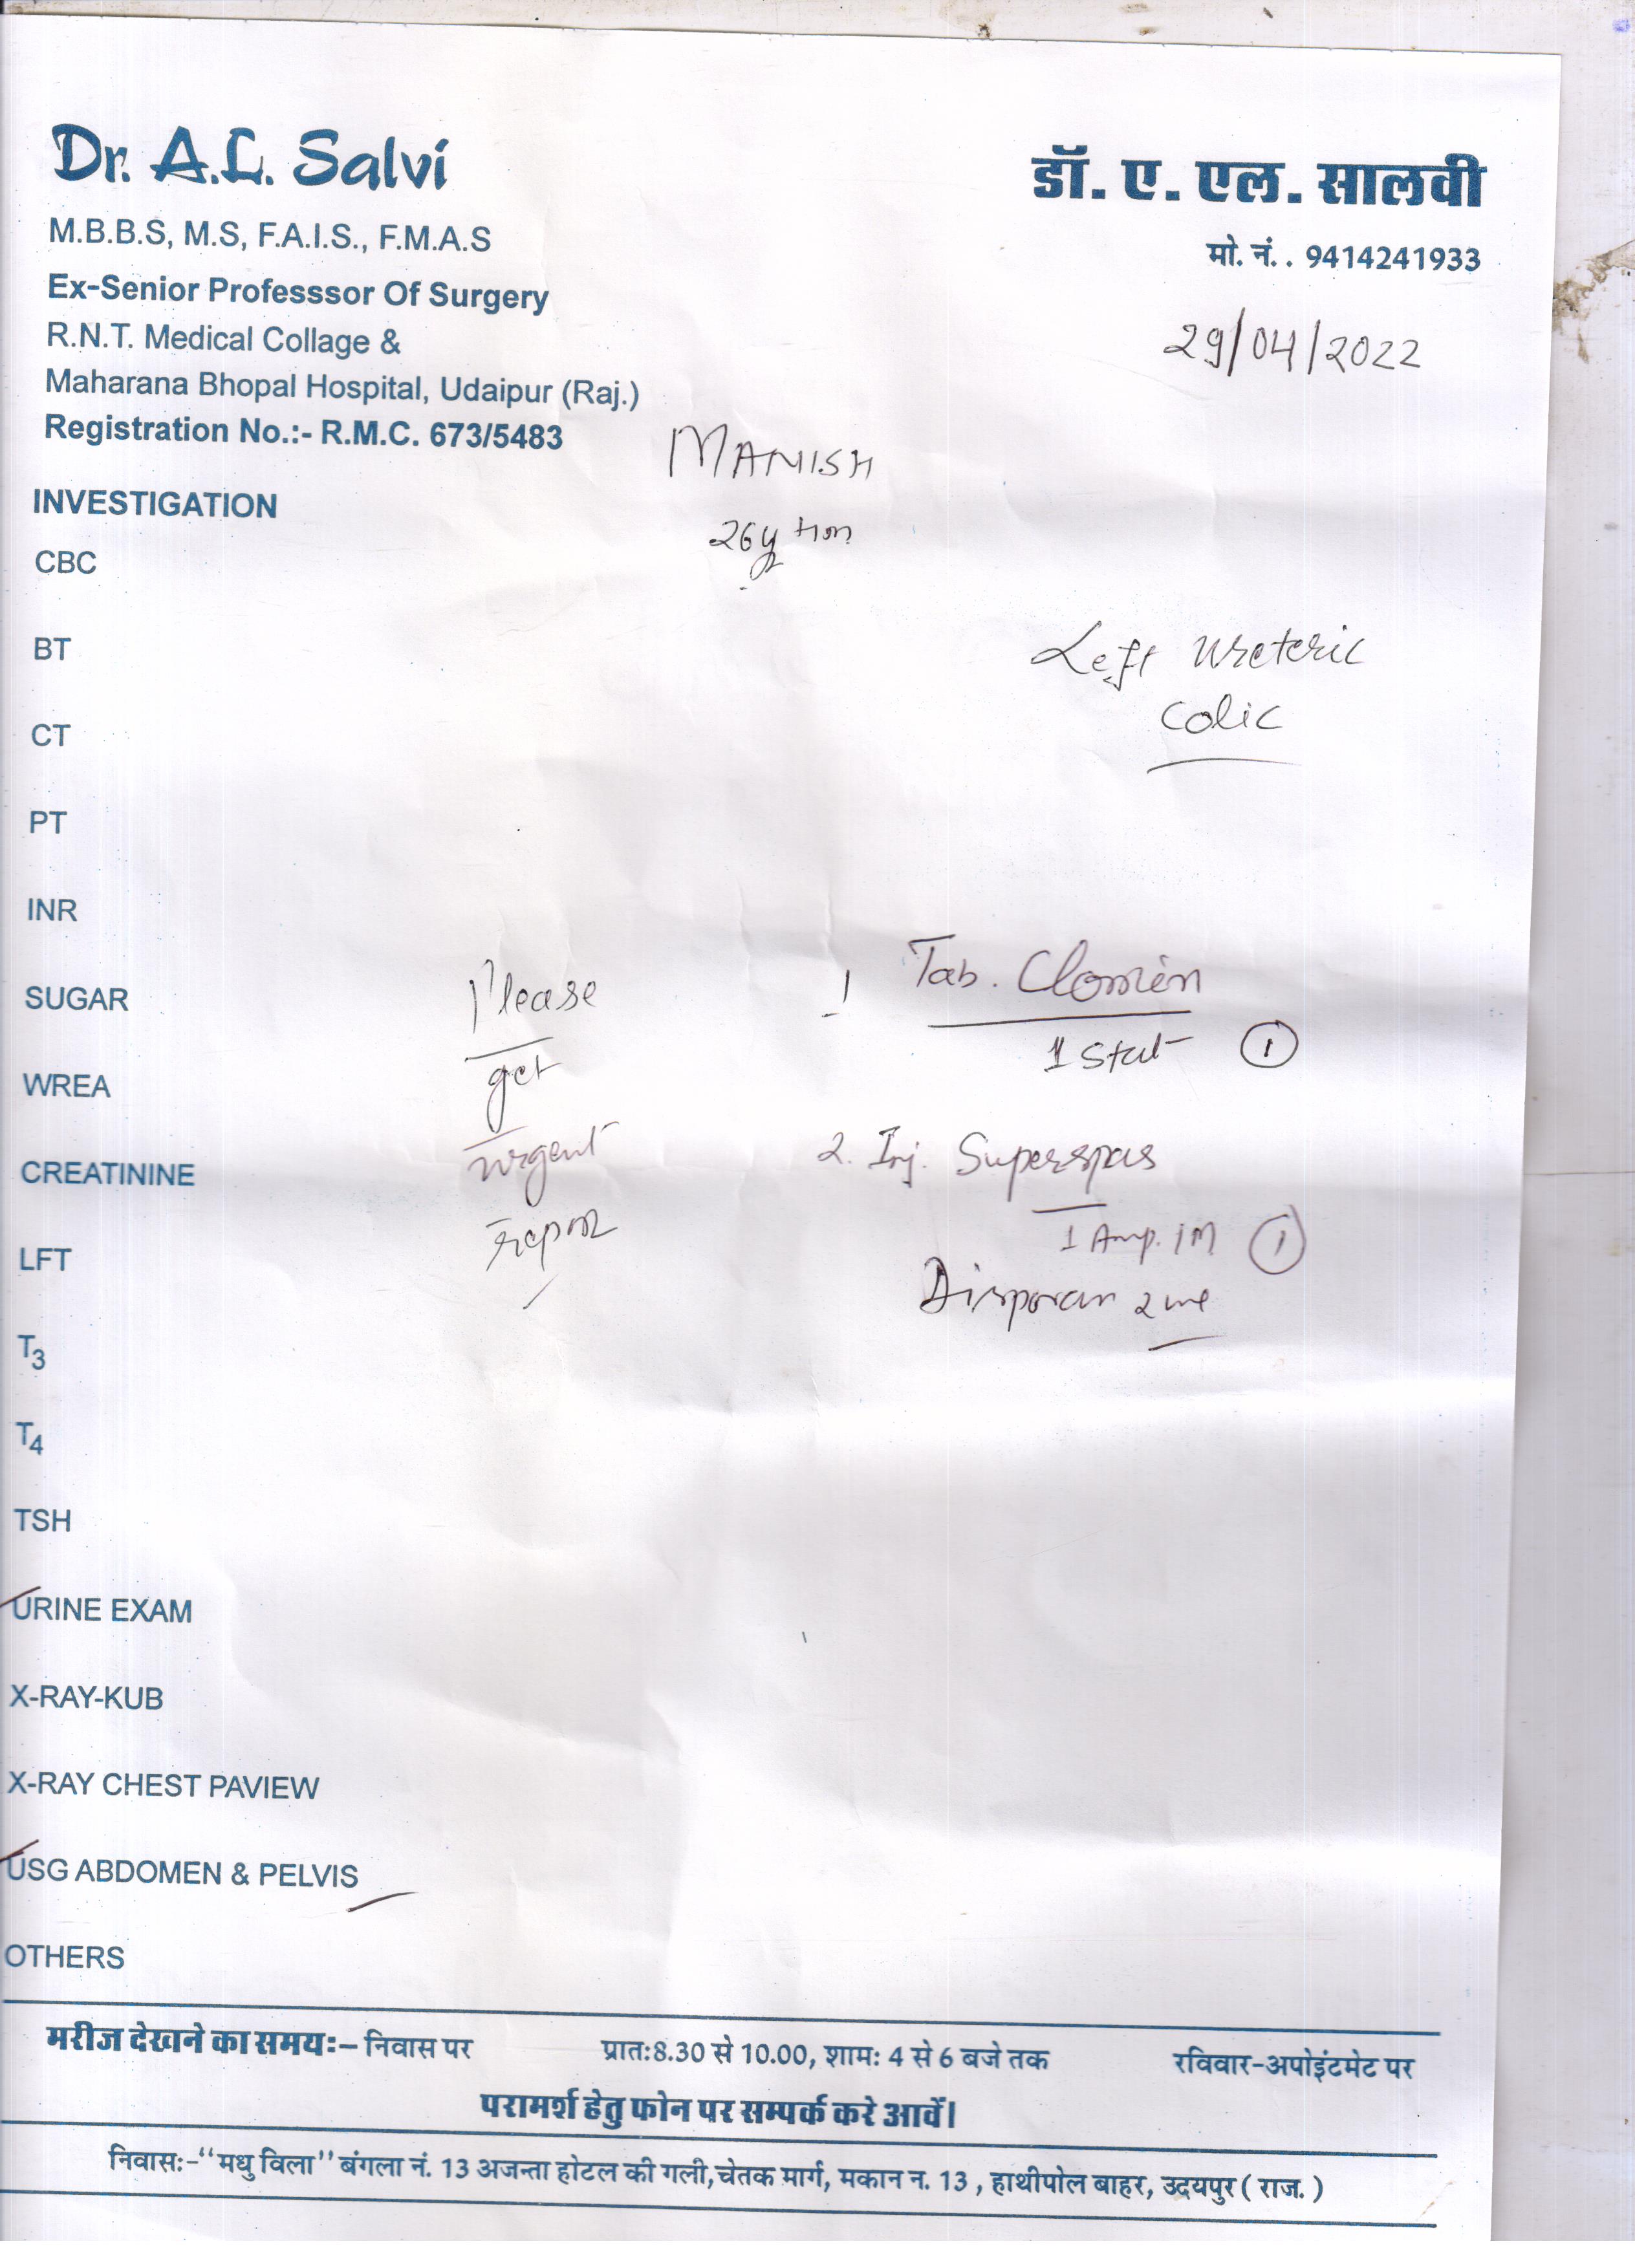 Dr. A.L. Salvi
डॉ. ए. एल. सालवी
M.B.B.S, M.S, F.A.I.S., F.M.A.S
मो. नं. . 9414241933
Ex-Senior Professsor Of Surgery
R.N.T. Medical Collage &
29/04/2022
Maharana Bhopal Hospital, Udaipur (Raj.)
Registration No.:- R.M.C. 673/5483
MANISH
INVESTIGATION
26y
CBC
BT
Left ureteric
colic
CT
PT
INR
Tab.
SUGAR
Please
1 Stat 1
get
WREA
urgent
2. Inj. Superspas
CREATININE
report
1 Amp. IM 1
LFT
2 ml
T3
T4
TSH
URINE EXAM
X-RAY-KUB
X-RAY CHEST PAVIEW
USG ABDOMEN & PELVIS
OTHERS
मरीज देखने का समयः– निवास पर प्रातः8.30 से 10.00, शामः 4 से 6 बजे तक रविवार-अपोइंटमेट पर
परामर्श हेतु फोन पर सम्पर्क करे आवें।
निवासः-“मधु विला” बंगला नं. 13 अजन्ता होटल की गली,चेतक मार्ग, मकान न. 13 , हाथीपोल बाहर, उदयपुर ( राज. )